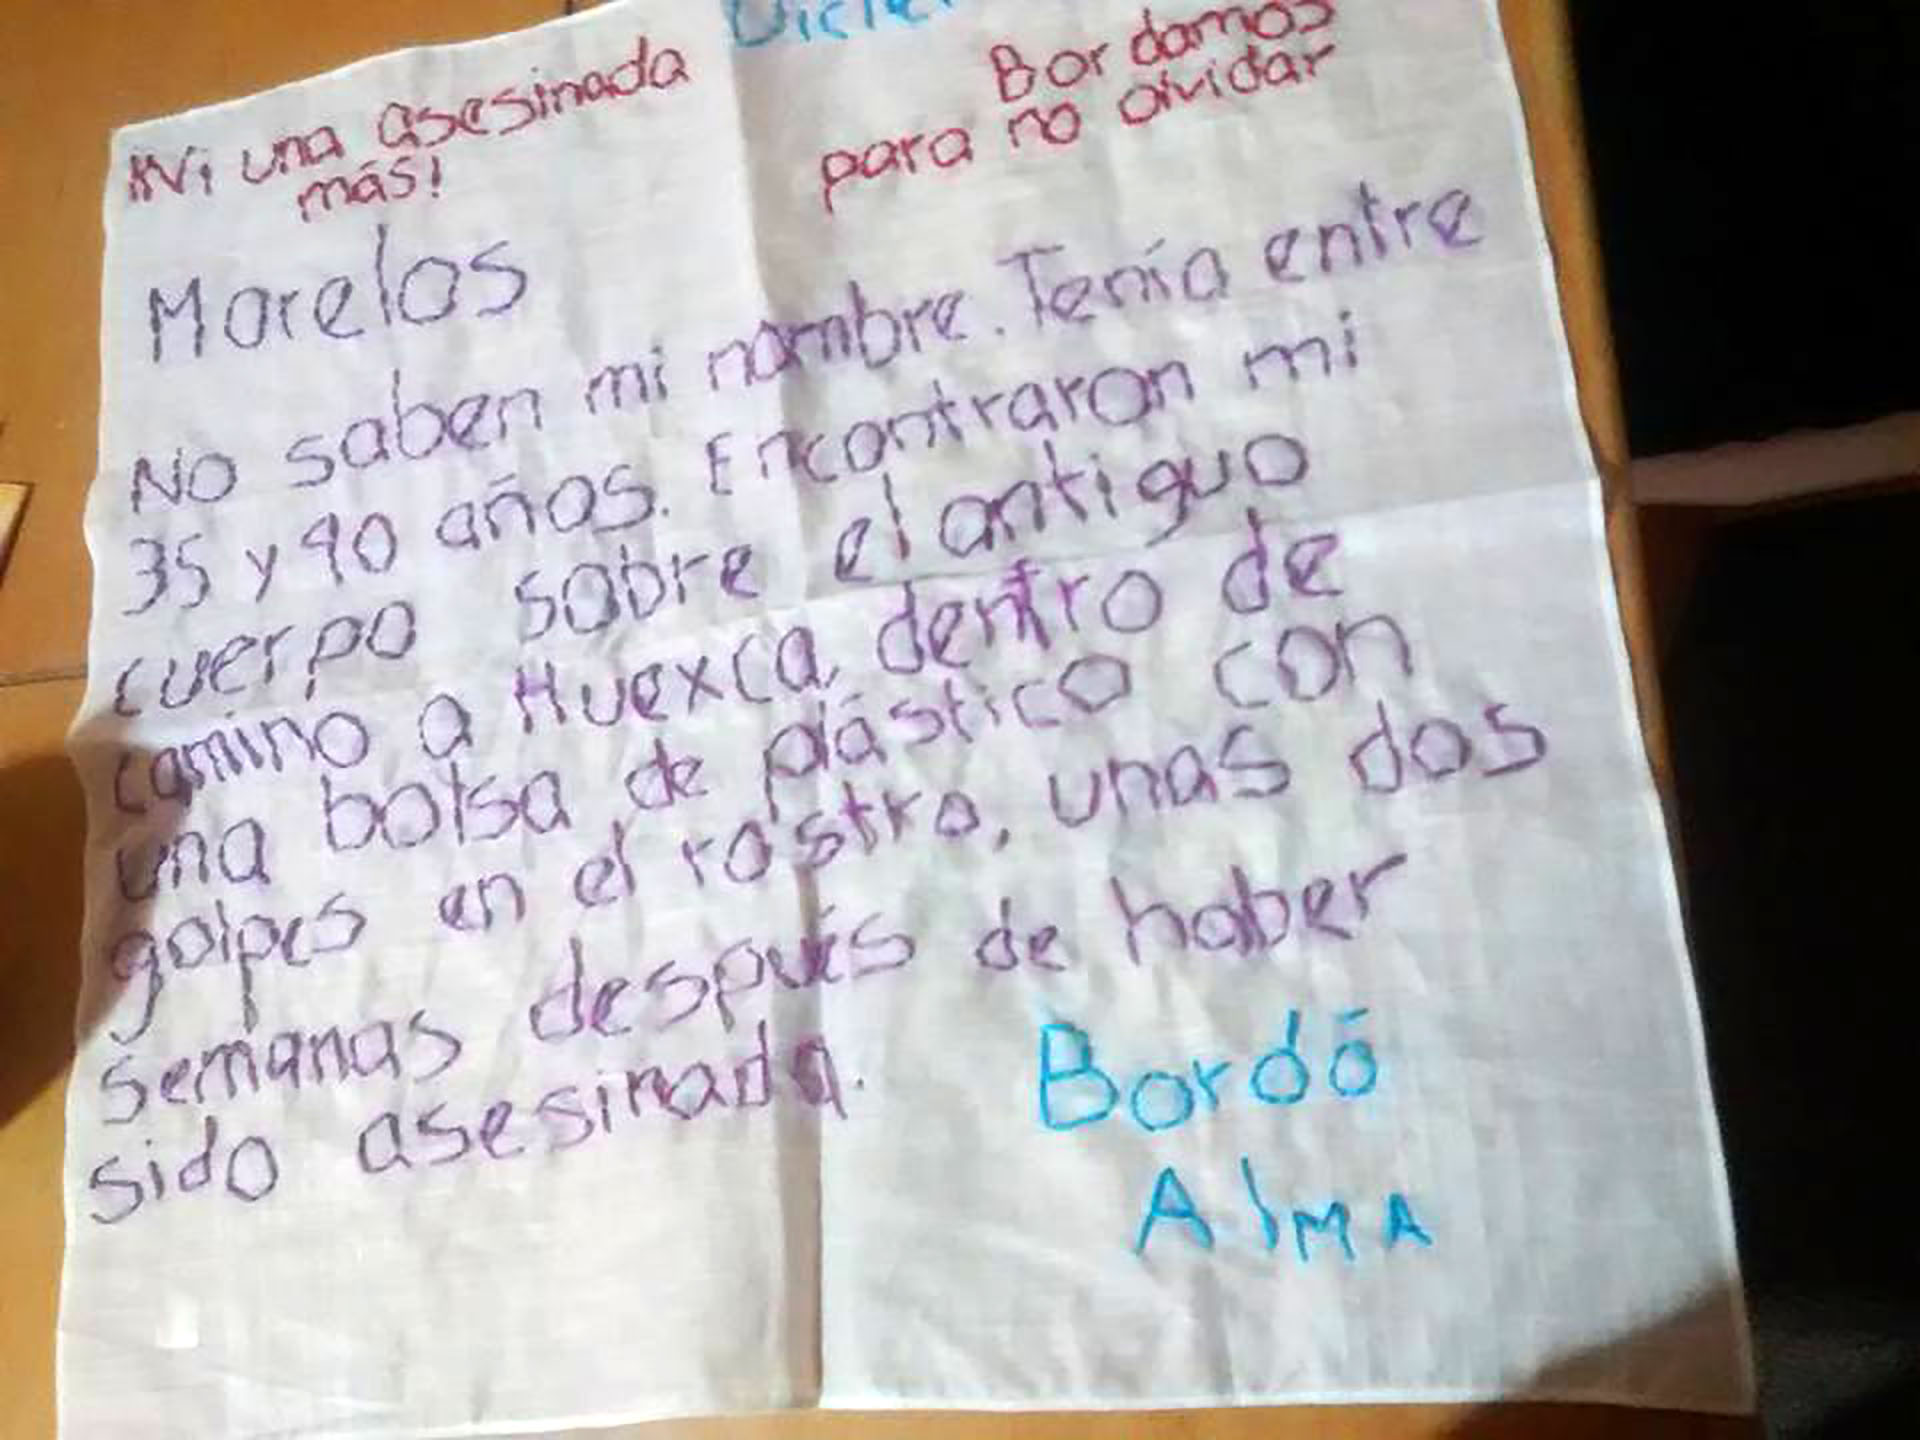 ¡Ni una asesinada
más!
Bordamos
para no olvidar
Morelos
No saben mi nombre. Tenía entre
35 y 40 años. Encontraron mi
cuerpo sobre el antiguo
camino a Huexca, dentro de
una bolsa de plástico con
golpes en el rostro, unas dos
semanas después de haber
sido asesinada.
Bordó
AlMA